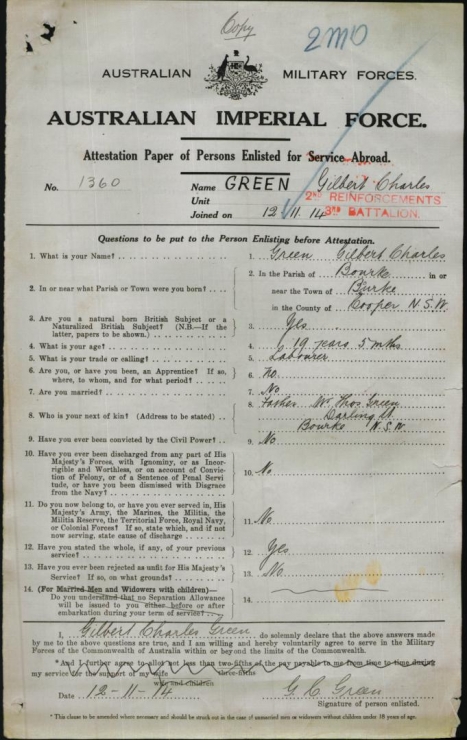 Copy
2MD
AUSTRALIAN MILITARY FORCES.
AUSTRALIAN IMPERIAL FORCE.
Attestation Paper of Persons Enlisted for Service Abroad.
No. 1360 Name GREEN Gilbert Charles
Unit 2ND REINFORCEMENTS
Joined on 12 11. 14 3RD BATTALION.
Questions to be put to the Person Enlisting before Attestation.
1. What is your Name? 1. Green Gilbert Charles
2. In or near what Parish or Town were you born? 2. In the Parish of Bourke in or
near the Town of Burke
in the County of Cooper N.S.W
3. Are you a natural born British Subject or a
Naturalized British Subject? (N.B.—If the
latter, papers to be shown.) 3. Yes
4. What is your age? 4. 19 years 5 mths
5. What is your trade or calling? 5. Labourer
6. Are you, or have you been, an Apprentice? If so,
where, to whom, and for what period? 6. No.
7. Are you married? 7. No
8. Who is your next of kin? (Address to be stated) 8. Father Thos Green
Darling St
Bourke N.S.W.
9. Have you ever been convicted by the Civil Power? 9. No
10. Have you ever been discharged from any part of His
Majesty's Forces, with Ignominy, or as Incor-
rigible and Worthless, or on account of Convic-
tion of Felony, or of a Sentence of Penal Servi-
tude, or have you been Dismissed with Disgrace
from the Navy? 10. No
11. Do you now belong to, or have you ever served in, His
Majesty's Army, the Marines, the Militia, the
Militia Reserve, the Territorial Force, Royal Navy,
or Colonial Forces? If so, state which, and if not
now serving, state cause of discharge 11. No
12. Have you stated the whole, if any, of your previous
service? 12. Yes
13. Have you ever been rejected as unfit for His Majesty's
Service? If so, on what grounds? 13. No
14. (For Married Men and Widowers with children)—
Do you understand that no Separation Allowance
will be issued to you either before or after
embarkation during your term of service? 14.
I, Gilbert Charles Green do solemnly declare that the above answers made
by me to the above questions are true, and I am willing and hereby voluntarily agree to serve in the Military
Forces of the Commonwealth of Australia within or beyond the limits of the Commonwealth.
*And I further agree to allot not less than two-fifths of the pay payable to me from time to time during
three-fifths
my service for the support of my wife
wife and children
Date 12-11-14 G. C. Green
Signature of person enlisted.
* This clause to be amended where necessary and should be struck out in the case of unmarried men or widowers without children under 18 years of age.